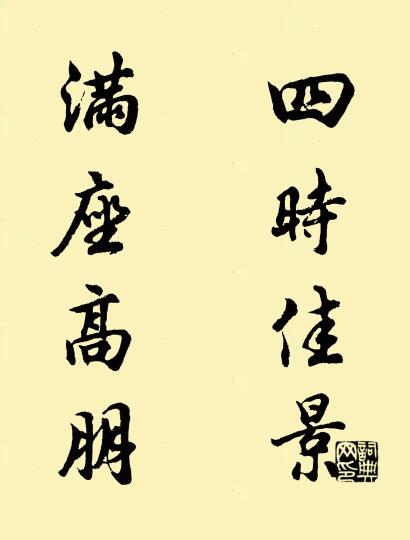 四時佳景
滿座高朋
詞典
网印